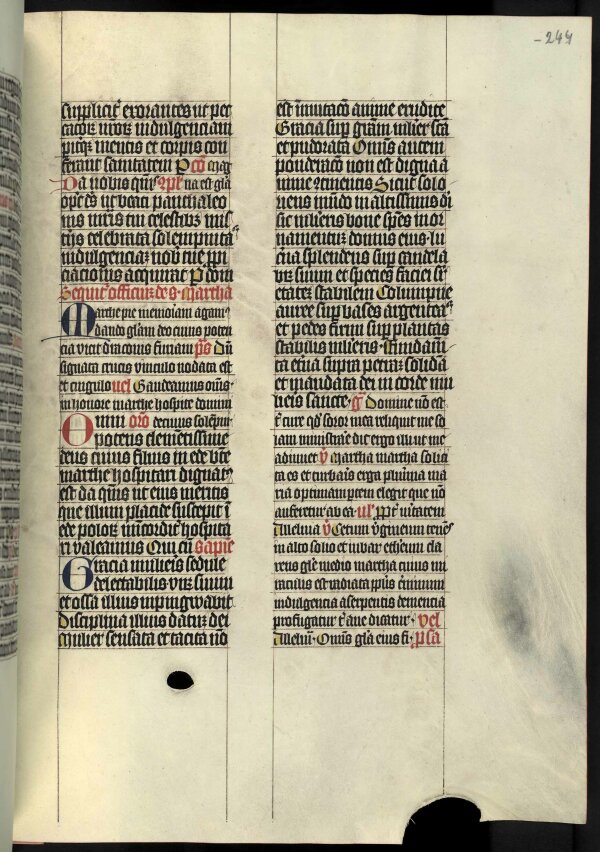 -244
supplicit exorantes ut pec
catorum nostrorum indulgenciam
piterque mentis et corporis con
ferant sanitatem Pco
Da nobis quesumus
opereris ut beati panthaleo
nis mris tui celestibus mis
terijs celebrata solempnitas
indulgenciam nobis tue pro
piaciacionis acquirat P dom
Sequit officium de s. martha
Marthe pie memoriam agam
dando gloriam deo cuius poten
cia vicit draconis furiam ps Dum
signata crucis vinculo nodata est
et cingulo vel Gaudeamus omnes
in honore marthe hospite domini
Omnipotens oro
potens clementissime
deus cuius filius in ede beate
marthe hospitari dignatus
est da quesumus ut eius meritis
que illum placide suscepit in
ede polorum misericordit hospita
ri valeamus Qui cum sapie
Gracia mulieris sedule
delectabit virum suum
et ossa illius inpingwabit
Disciplina illius datum dei
Mulier sensata et tacita non
est inmutaco anime erudite
Gracia super graciam mulier sancta
et pudorata Omnis autem
ponderaco non est digna a
nime continentis Sicut sol o
riens mundo in altissimis dei
sic mulieris bone species in or
namentum domus eius lu
cerna splendens super candela
brum suum et species faciei super
etatem stabilem Columpne
auree super bases argenteas
et pedes firmi super plantas
stabilis mulieris fundamen
ta eterna supra petram solidam
et mandata dei in corde mu
lieris sancte. g Domine non est
tibi cure quod soror mea reliquit me so
lam ministrare dic ergo illi ut me
adiuvet v Martha martha solici
ta es et turbaris erga plurima ma
ria optimam partem elegit que non
auferetur ab ea
Alleluia v
in alto solio et iubar ethereum cla
rens glorie medio martha cuius mi
raculis est radiata
indulgencia a serpentis demencia
profugatur et ave dicatur vel
Allelui Omnis gloria eius fi psa